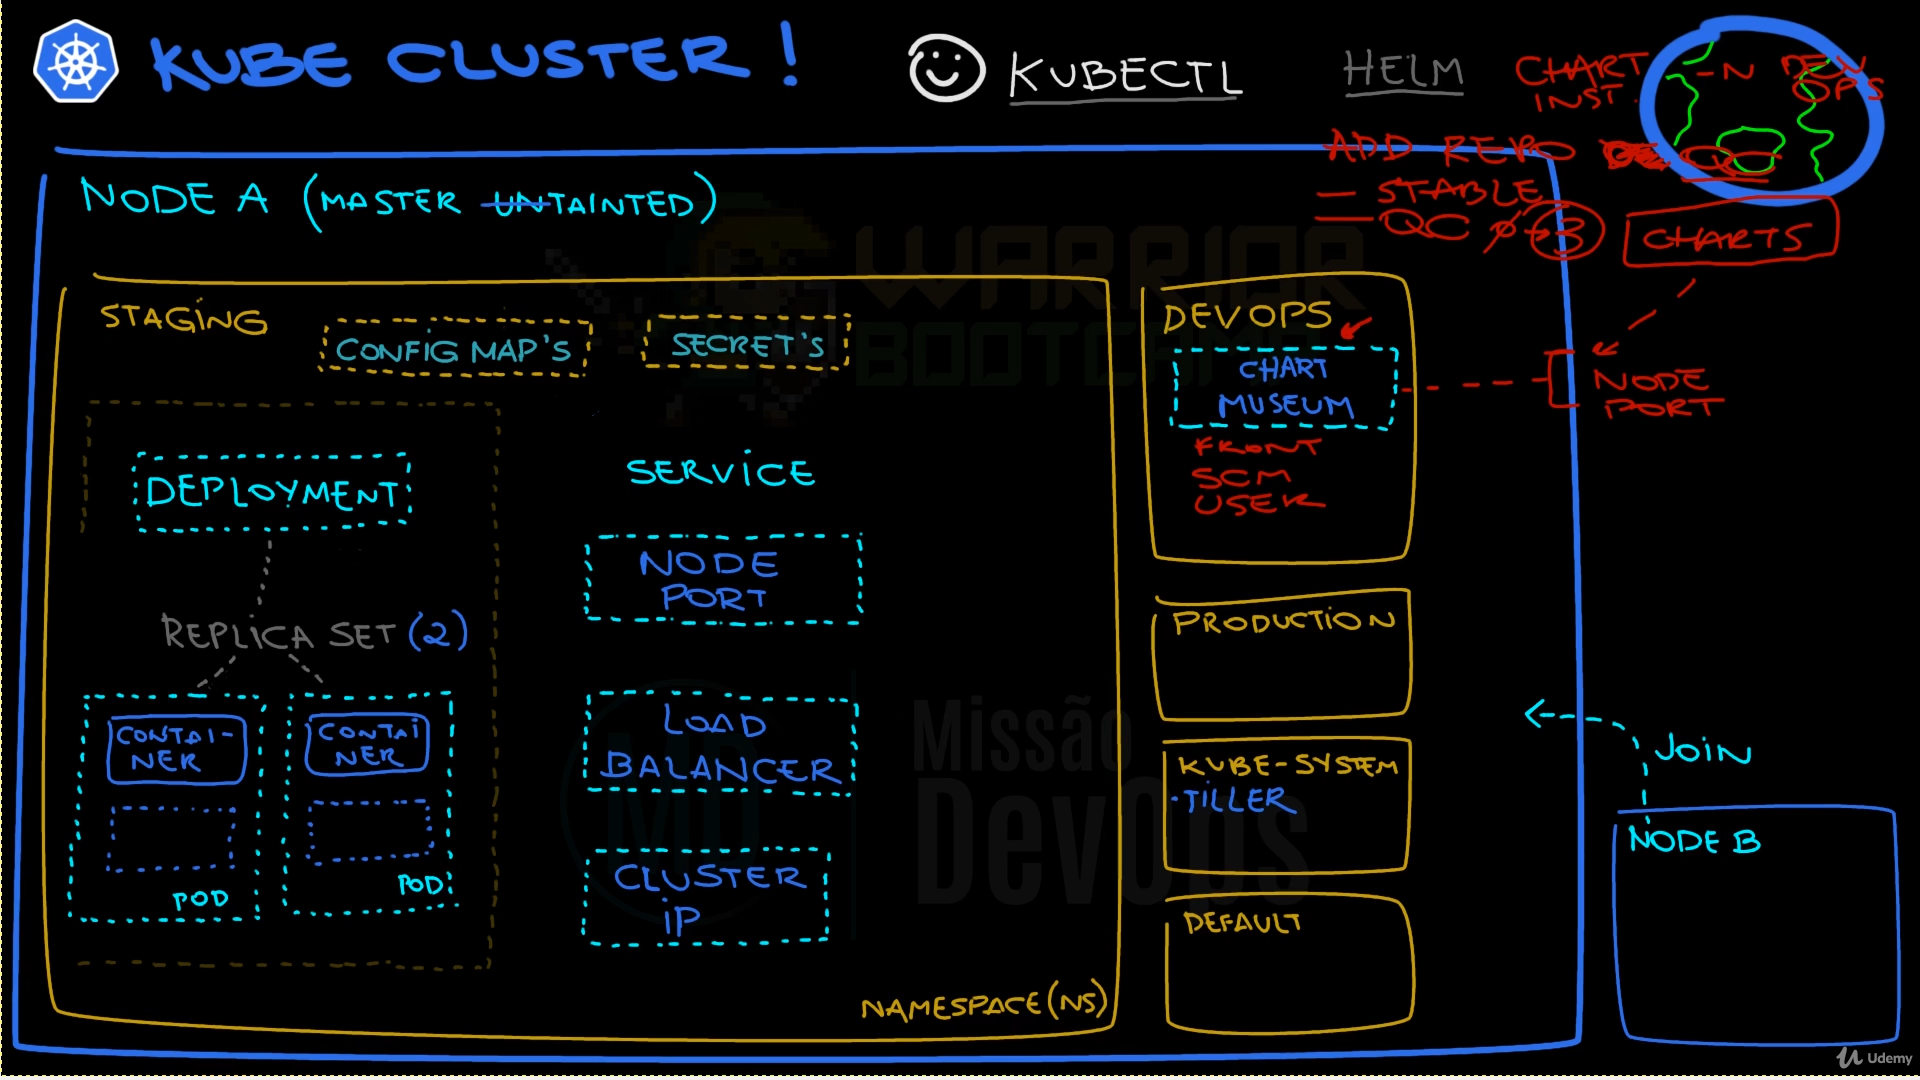 KUBE CLUSTER!
KUBECTL
HELM
CHART
INST.
-N DEV
OPS
ADD REPO
QC
— STABLE
— QC
3
CHARTS
NODE A (MASTER UNTAINTED)
WARRIOR
BOOTCAMP
STAGING
CONFIG MAP'S
SECRET'S
DEPLOYMENT
REPLICA SET (2)
CONTAI-
NER
POD
CONTAI
NER
POD
SERVICE
NODE
PORT
LOAD
BALANCER
CLUSTER
IP
NAMESPACE (NS)
DEVOPS
CHART
MUSEUM
FRONT
SCM
USER
NODE
PORT
PRODUCTION
KUBE-SYSTEM
·TILLER
DEFAULT
JOIN
NODE B
MD
Missão
DevOps
Udemy